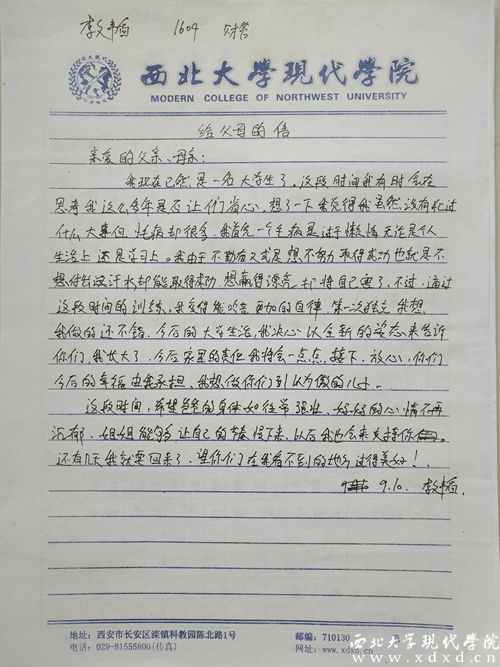 1604 财管
西北大學现代學院
MODERN COLLEGE OF NORTHWEST UNIVERSITY
给父母的信
亲爱的父亲、母亲：
我现在已然是一名大学生了。这段时间我有时会在
思考我这么多年是否让你们省心。想了一下我觉得我虽然没有犯过
什么大事但毛病却很多，我首先一个毛病是过于懒惰无论是个人
生活上还是学习上。我由于不勤奋又或是想不努力取得成功也就是不
想付出汗水却能取得成功，想赢得漂亮却将自己 了，不过，通过
这段时间的训练，我变得能吃苦，更加的自律，第一次独立，我想
我做的还不错，今后的大学生活，我决心以全新的姿态来告诉
你们，我长大了，今后家里的责任我将会一点点接下，放心，你们
今后的幸福由我承担，我想做你们引以为傲的儿女。
这段时间，希望爸爸的身体如往常强壮，妈妈的心情不再
沉郁，姐姐能够让自己的 慢下来，以后我也会来支撑你 。
还有几天我就要回来了，望你们在我看不到的地方过得美好！
9.10.
地址：西安市长安区滦镇科教园陈北路1号
邮编：710130
电话：029-81555800(传真)
网址：www.xdxd.cn
西北大学现代学院
www.xdxd.cn